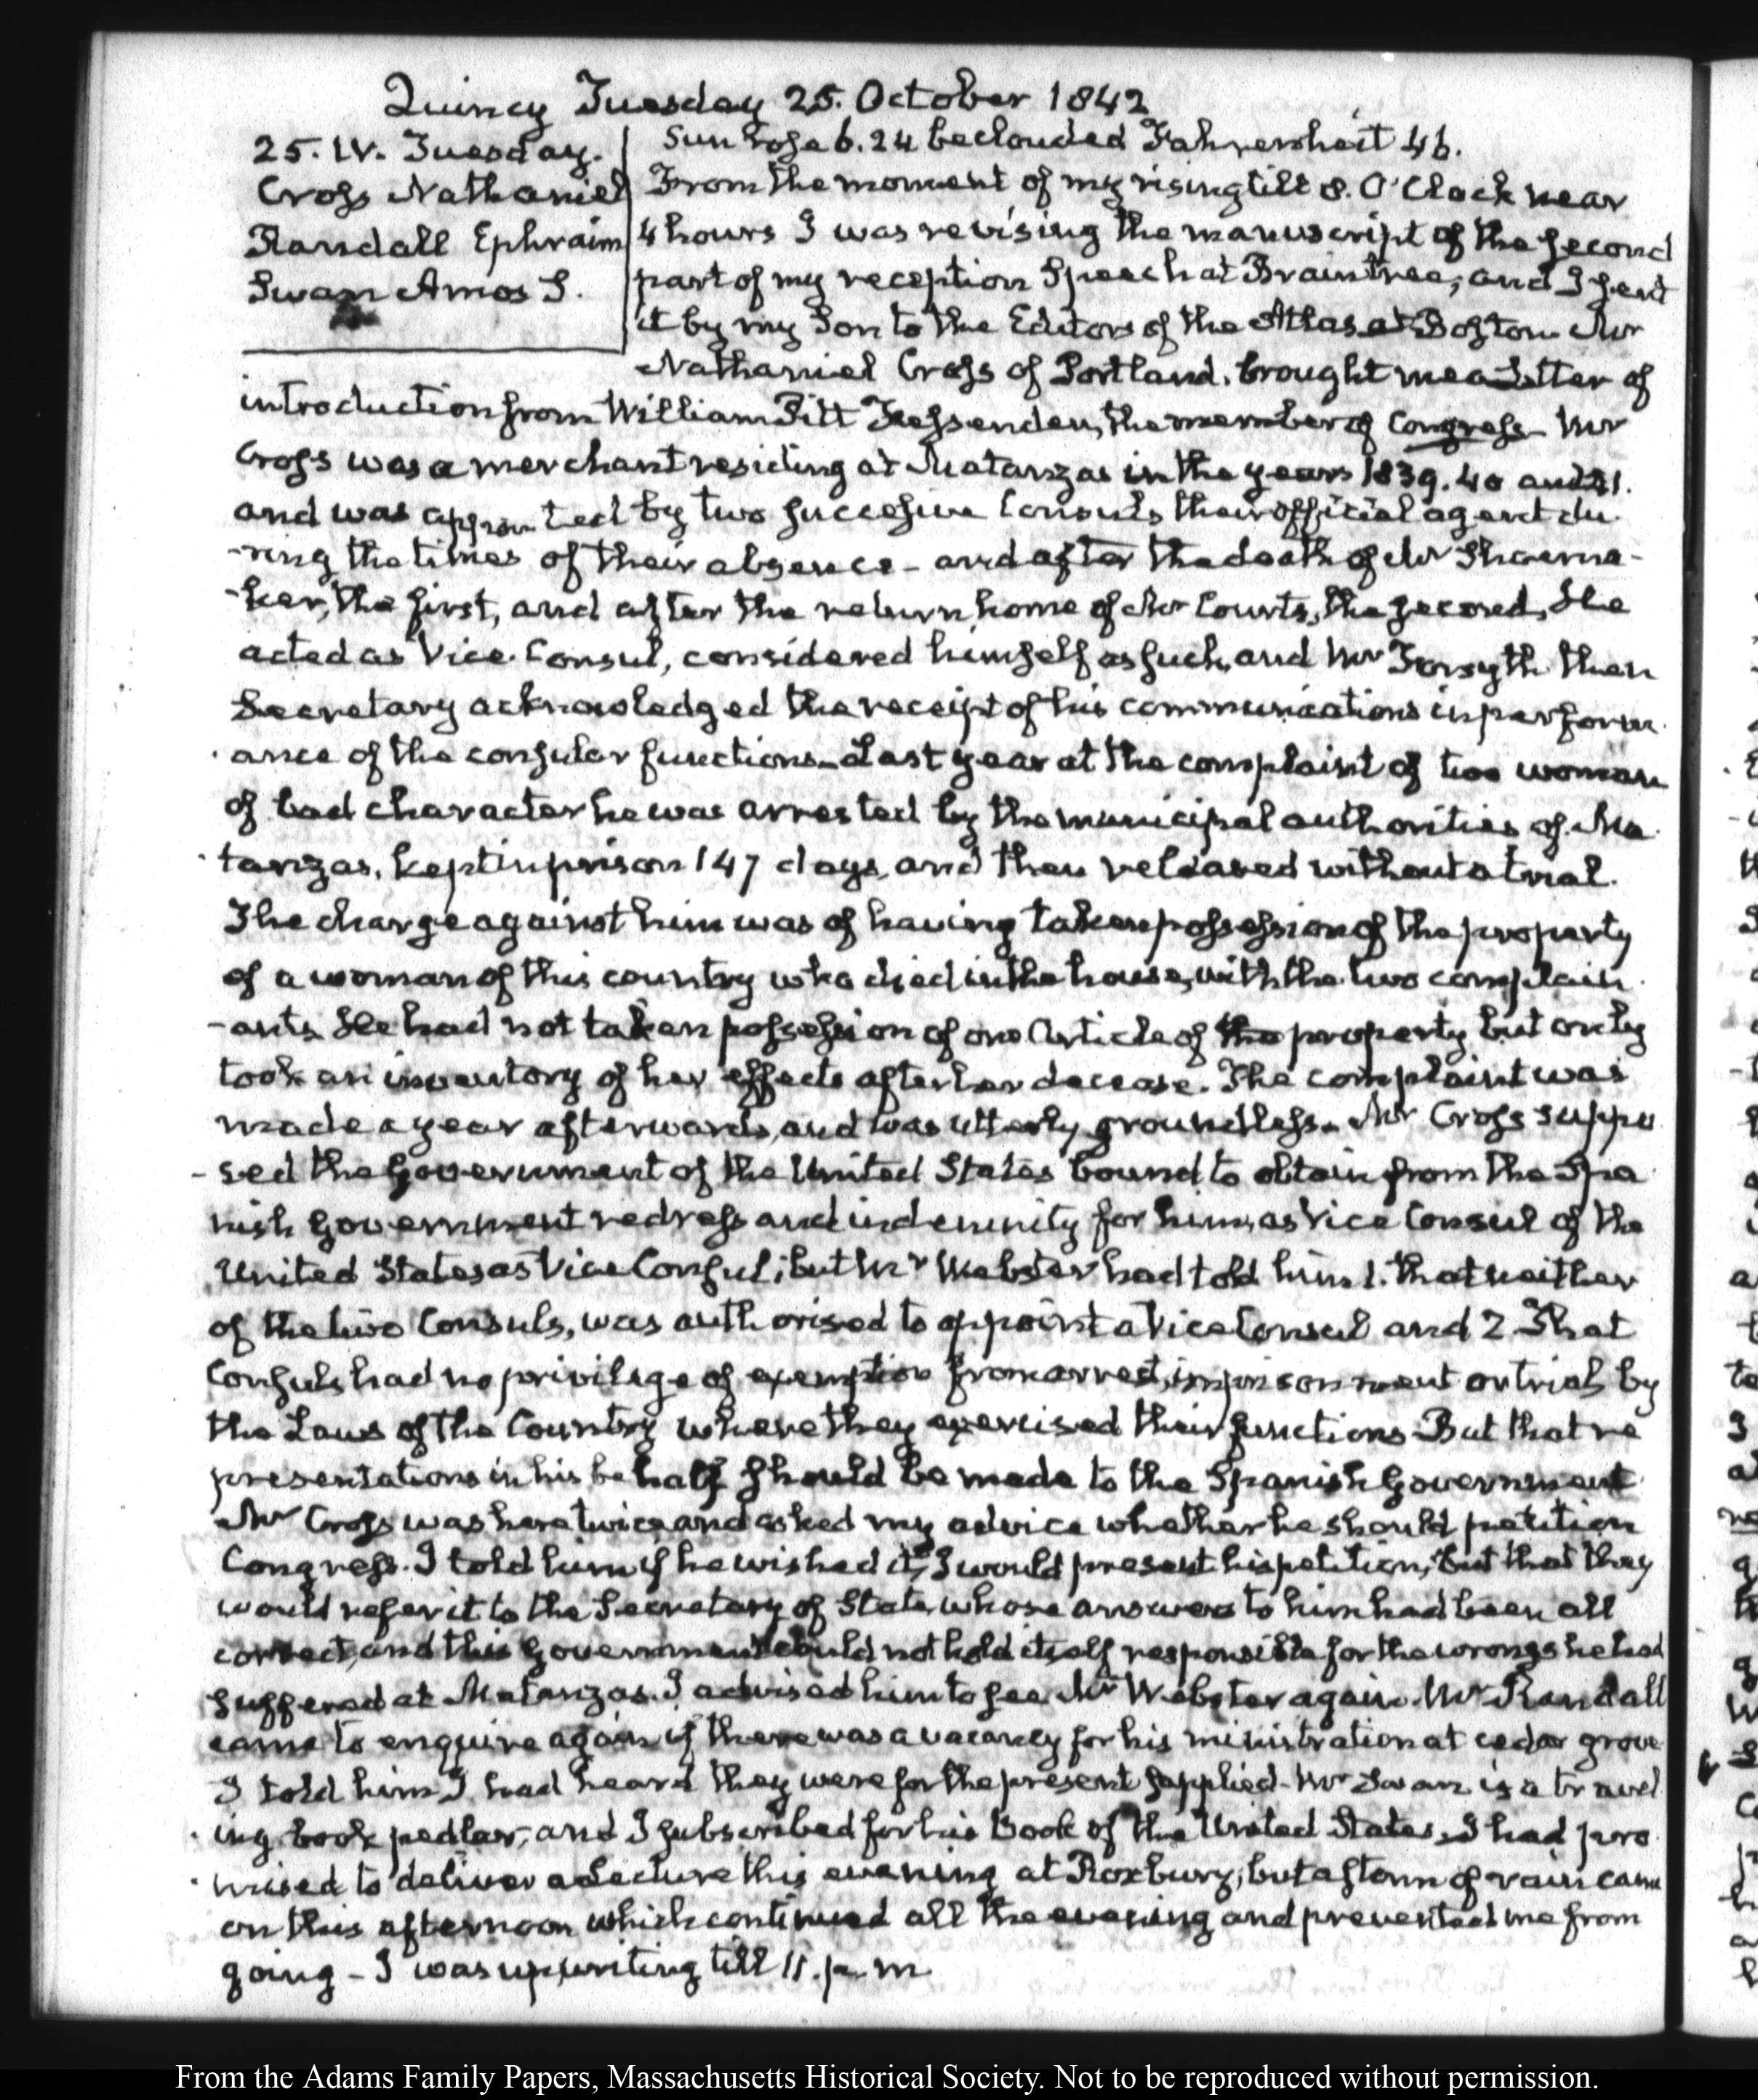 Quincy Tuesday 25. October 1842
25. IV. Tuesday.
Cross Nathaniel
Randall Ephraim
Swan Amos S.
Sun rose 6.24 beclouded Fahrenheit 46.
From the moment of my rising till 8. O'Clock near
4 hours I was revising the manuscript of the second
part of my reception Speech at Braintree, and I sent
it by my Son to the Editors of the Atlas at Boston Mr
Nathaniel Cross of Portland, brought me a Letter of
introduction from William Pitt Fessenden, the member of Congress Mr
Cross was a merchant residing at Matanzas in the years 1839. 40 and 41.
and was appointed by two successive Consuls their official agent du-
-ring the times of their absence - and after the death of Mr Shoema-
-ker, the first, and after the return home of Mr Courts, the second, he
acted as Vice-Consul, considered himself as such, and Mr Forsyth then
Secretary acknowledged the receipt of his communications in perform-
-ance of the consular functions - Last year at the complaint of two women
of bad character he was arrested by the municipal authorities of Ma-
-tanzas, kept in prison 147 days, and then released without a trial.
The charge against him was of having taken possession of the property
of a woman of this country who died in the house, with the two complain-
-ants. He had not taken possession of one Article of the property but only
took an inventory of her effects after her decease. The complaint was
made a year afterwards, and was utterly groundless. Mr Cross suppo-
-sed the Government of the United States bound to obtain from the Spa-
nish Government redress and indemnity for him, as Vice Consul of the
United States as Vice Consul; but Mr Webster had told him 1. that neither
of the two Consuls, was authorised to appoint a Vice Consul and 2 That
Consuls had no privilege of exemption from arrest, imprisonment or trial by
the Laws of the Country where they exercised their functions But that re
presentations in his behalf should be made to the Spanish Government
Mr Cross was here twice and asked my advice whether he should petition
Congress. I told him if he wished it, I would present his petition, but that they
would refer it to the Secretary of State, whose answers to him had been all
correct, and this Government could not hold itself responsible for the wrongs he had
suffered at Matanzas. I advised him to see Mr Webster again. Mr Randall
came to enquire again if there was a vacancy for his ministration at cedar grove
I told him I had heard they were for the present supplied - Mr Swan is a travel
-ing book pedlar, and I subscribed for his Book of the United States. I had pro
-mised to deliver a Lecture this evening at Roxbury, but a storm of rain came
on this afternoon which continued all the evening and prevented me from
going - I was up writing till 11. p.m
From the Adams Family Papers, Massachusetts Historical Society. Not to be reproduced without permission.